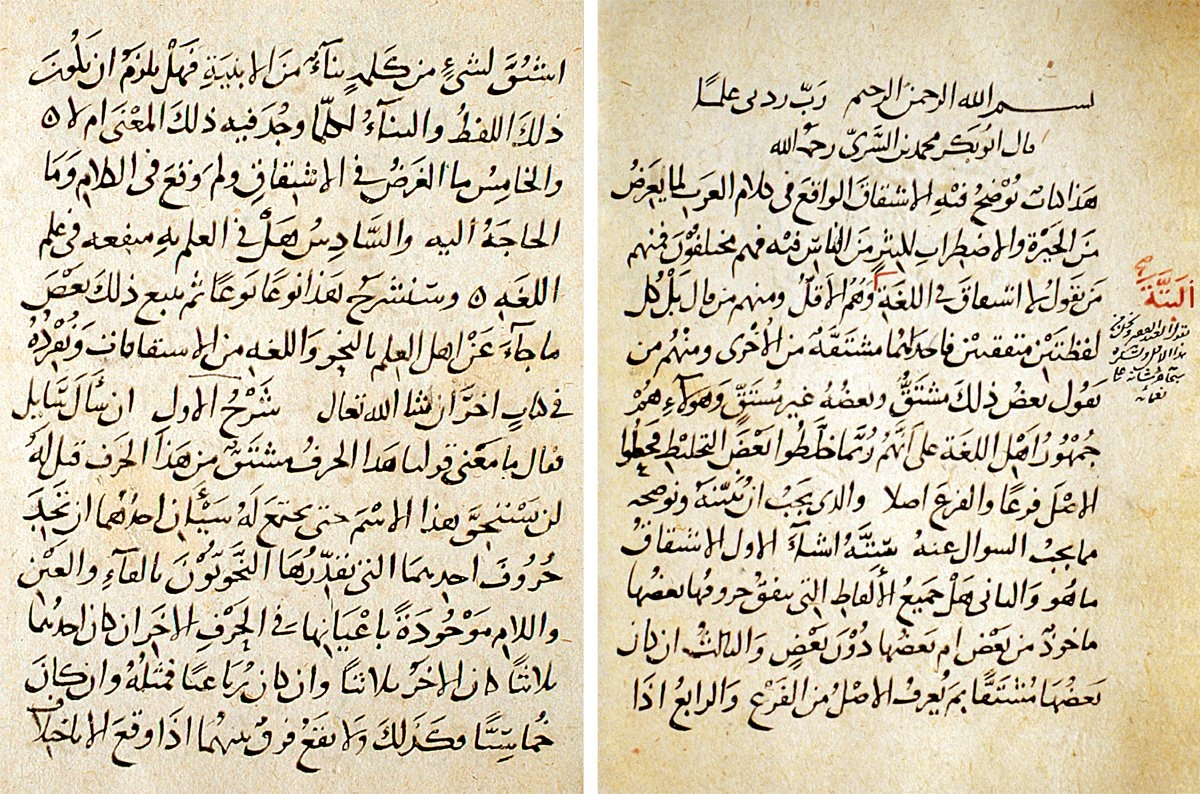 بسم الله الرحمن الرحيم رب زدني علما
قال ابو بكر محمد بن السَّرِيّ رحمه الله
هذا كتاب نُوْضحُ فيْهِ الاشتقاقَ الواقعَ في كلام العرب لما يَعرِضُ
منَ الحَيْرَةِ والاضطراب للكثيرِ منَ الناسِ فيْه فهم مختلفوْنَ فمنهم
مَن يَقولُ لا اشتقاقَ في اللغَةِ وَهُمُ الأقلُّ ومنهم من قال بَلْ كل
لفظتَيْنِ متفقتيْنِ فاحداهُما مشتقَّةٌ منَ الأخْرى ومنْهُم من
يَقولُ بعضُ ذلكَ مشتقٌّ وبعضُهُ غير مُشتَقٍّ وهَؤلاءِ هُمْ
جُمْهُورُ اهْلِ اللغَة على انَّهُم رُبَّما خلَّطُوا بَعْضَ التخليْطِ فجعلُوا
الاصْلَ فرعًا والفرعَ اصلا والذي يجبُ ان نُبَيِّنَهُ ونوضحه
مما يجبُ السوال عنهُ سِتَّةُ اشيآءَ الاول الاشتقاقُ
ما هُو والثاني هَلْ جَميعُ الألفاظِ التي يتفقُ حروفُها بعضُها
ماخوذٌ من بَعْض ام بَعضُها دُوْنَ بَعْضٍ وَالثالثُ ان كان
بَعضُهَا مُشْتَقًّا بمَ يُعرفُ الاصْلُ منَ الفَرْعِ وَالرابعُ اذَا
اَلبتَّةَ
اشتُقَّ لشيءٍ من كَلمةٍ بناءٌ منَ الابنيَةِ فَهَلْ يلزمُ ان يَكُونَ
ذلكَ اللفظُ والبنَآءُ لكلِّ ما وُجدَ فيه ذلكَ المعْنى ام لا ٥
والخامِسُ ما الغَرَضُ في الاشتقاقِ ولمَ وَقعَ في الكلامِ وَمَا
الحاجَةُ اليه والسَّادِسُ هَلْ في العلم بهِ منفعه في علم
اللغَهِ ٥ وسَنشْرَحُ هَذا نوعًا نوعًا ثم نتبع ذلكَ بَعْضَ
ما جآءَ عَنْ اهل العِلم بالنحو وَاللغهِ منَ الاشتقاقات ونُفْرِدُهُ
في كتابٍ اخرَ ان شا الله تعالى شَرْحُ الاول ان سَأَلَ سَايل
فقال ما مَعْنى قولنا هذا الحرفُ مشتقٌّ من هَذا الحَرف قيل لهُ
لن يسْتَحِقَّ هذا الاسْمَ حتى يجتمعَ لهُ شيئان احدُهُما ان تجدَ
حُرُوفَ احدهمَا التي يقدِّرُهَا النَّحَوِيُّوْنَ بالفآءِ والعَيْن
واللامِ مَوْجُودَةً باعْيَانِها في الحرفِ الاخَرِ ان كان احدُهما
ثلاثيًّا كان الاخَرُ ثلاثيًّا وان كان رُباعيًّا فمثلُهُ وان كانَ
خُماسيًّا فكذلكَ وَلا يَقعُ فرقٌ بينهُما اذَا وقعَ الاختلافُ